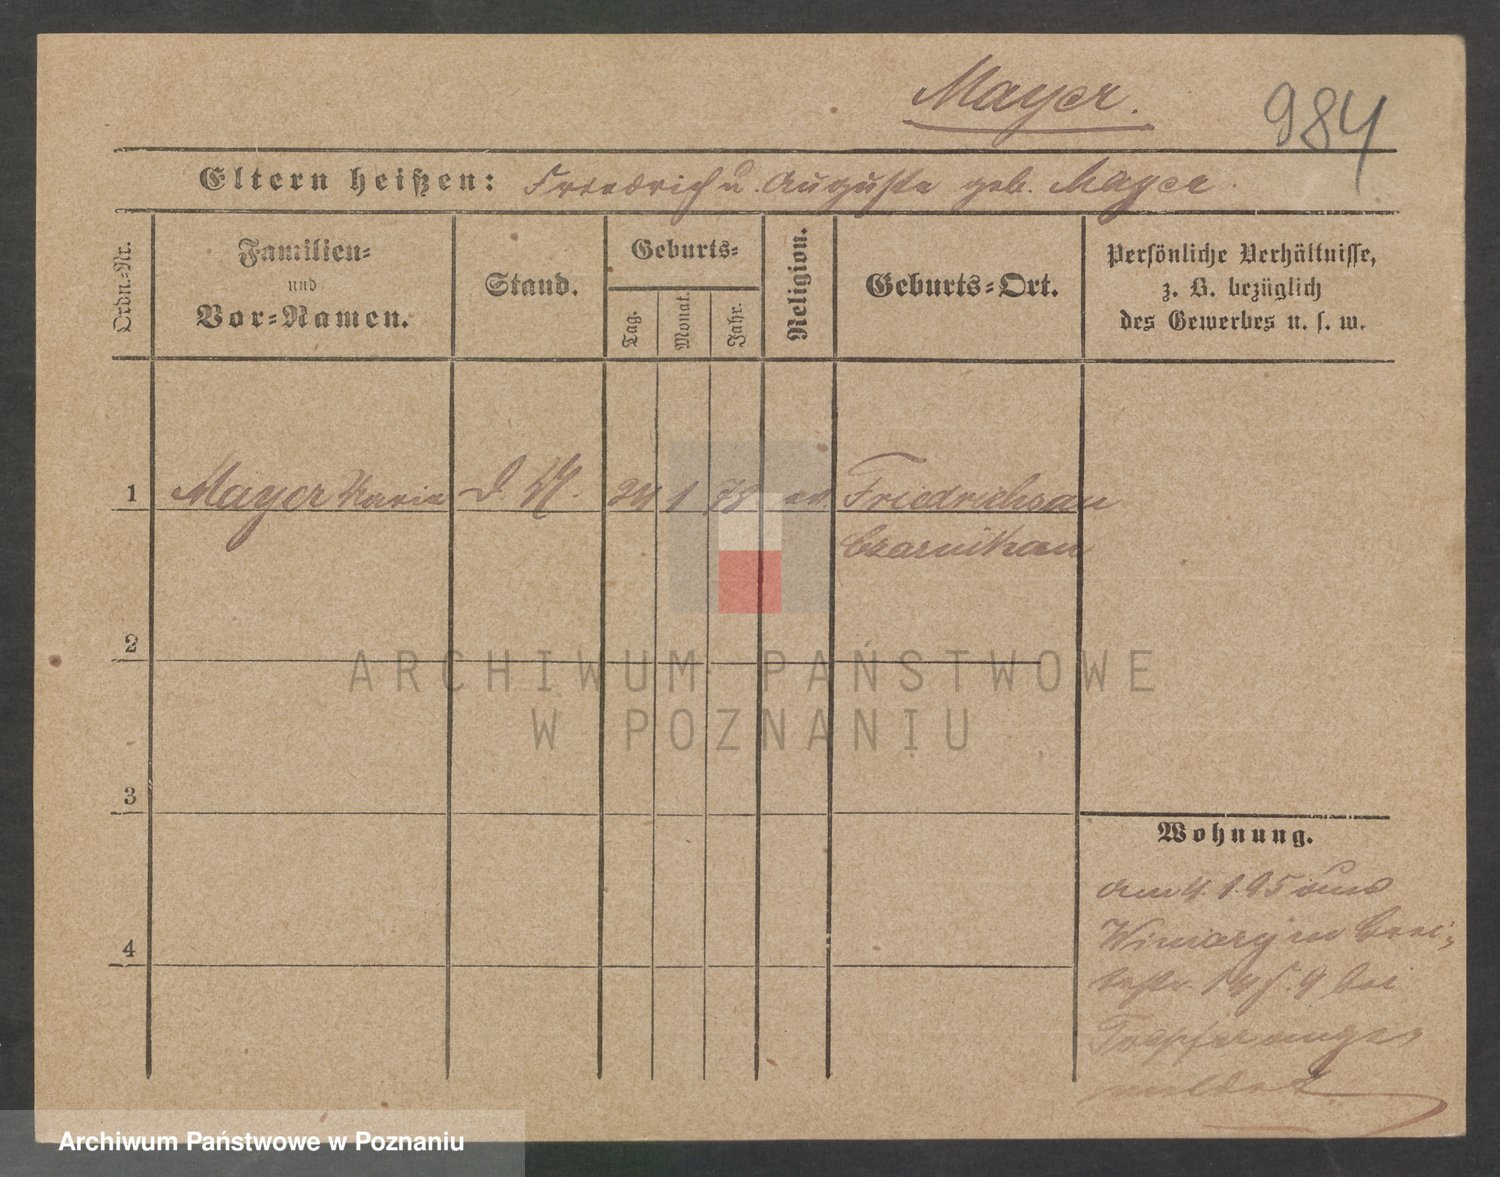 Mayer.
984
Eltern heißen: Friedrich u. Auguste geb. Mayer.
Ordn.-Nr.
Familien-
und
Vor-Namen.
Stand.
Geburts-
Tag.
Monat.
Jahr.
Religion.
Geburts-Ort.
Persönliche Verhältnisse,
z. B. bezüglich
des Gewerbes u. s. w.
1 Mayer Maria D. M. 24 1 78 ev. Friedrichsau
Czarnikau
2
3
4
Wohnung.
am 4. 1. 95 aus
Winiary in Brei-
testr. 14 f. 9 bei
Toepfer ange-
meldet
ARCHIWUM PAŃSTWOWE
W POZNANIU
Archiwum Państwowe w Poznaniu